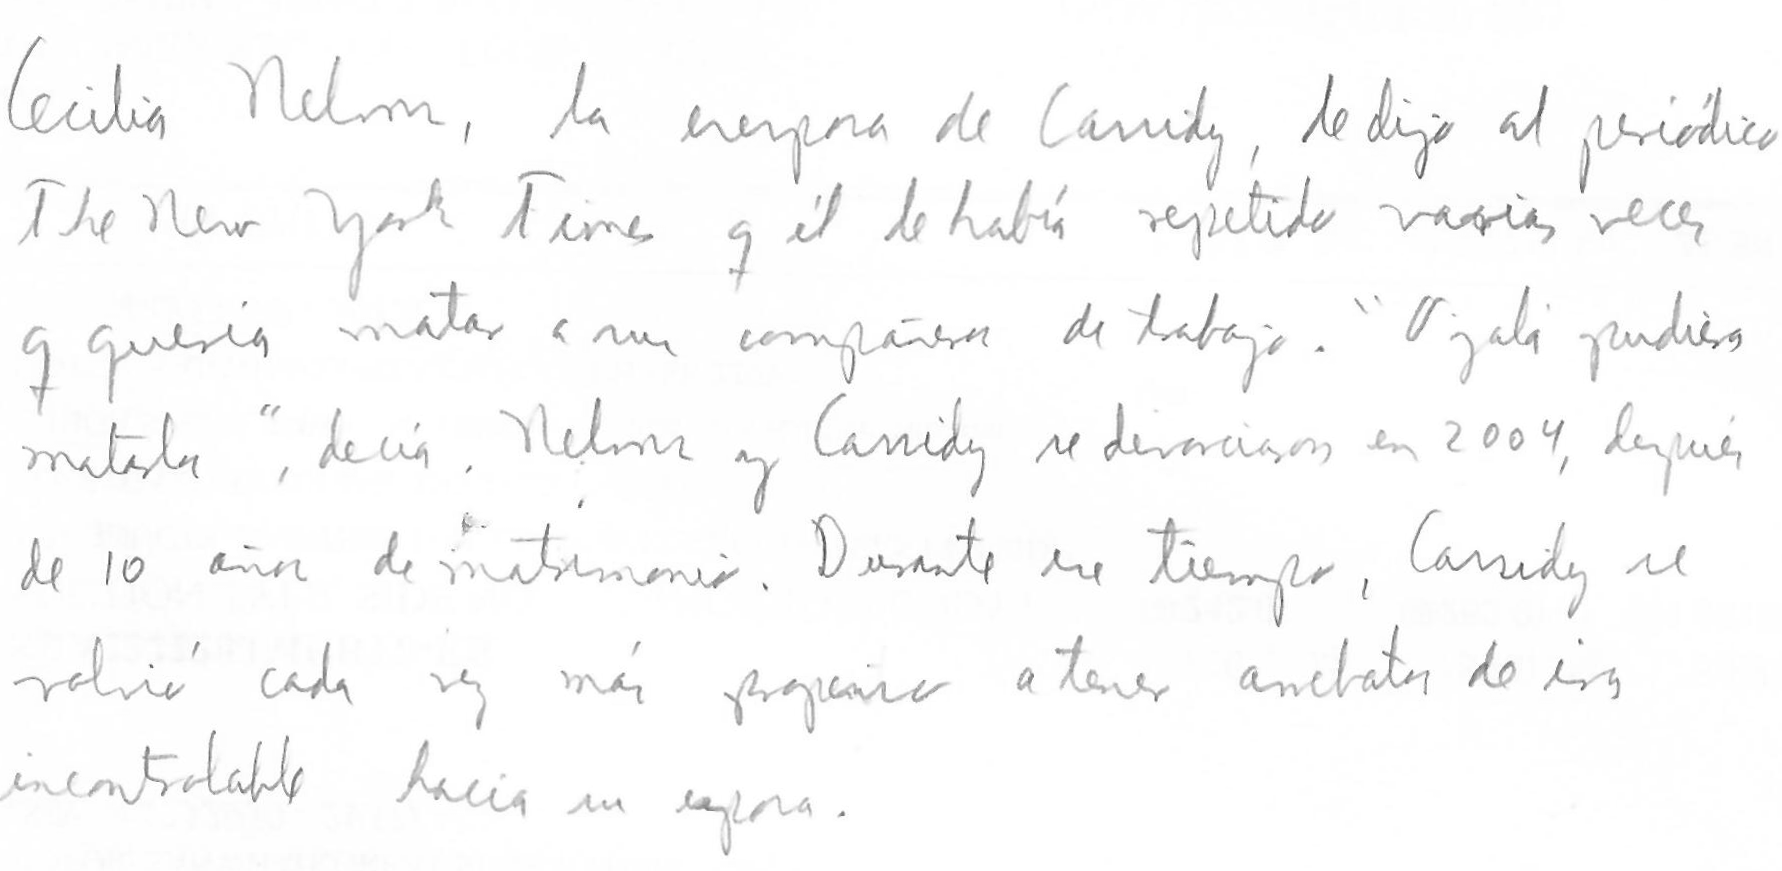 Cecilia Nelson, la exesposa de Cassidy, le dijo al periódico
The New York Times q él le había repetido varias veces
q quería matar a sus compañeros de trabajo. "Ojalá pudiera
matarlos", decía. Nelson y Cassidy se divorciaron en 2004, después
de 10 años de matrimonio. Durante ese tiempo, Cassidy se
volvió cada vez más propenso a tener arrebatos de ira
incontrolable hacia su esposa.